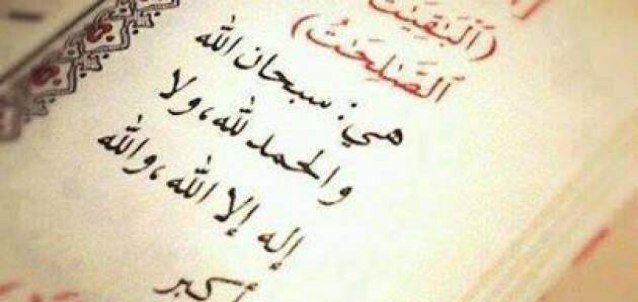 (ٱلْبَٰقِيَٰتُ
ٱلصَّٰلِحَٰتُ)
هي: سبحان الله
والحمد لله، ولا
إله إلا الله، والله
أكبر